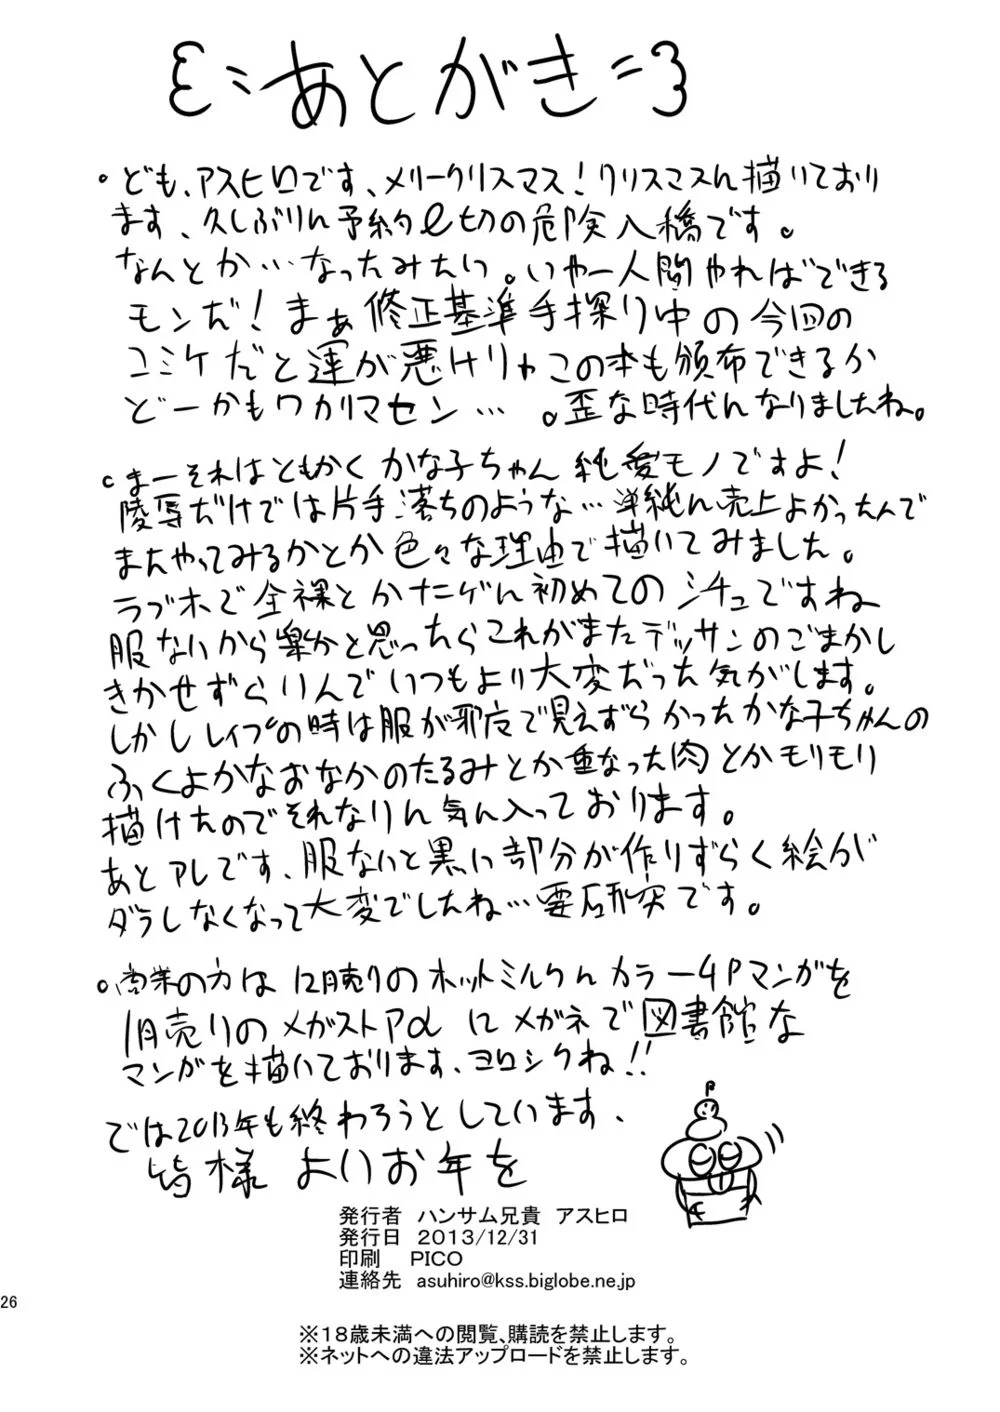 あとがき
。ども、アスヒロです、メリークリスマス！クリスマスに描いており
ます、久しぶりに予約〆切の危険入橋です。
なんとか…なったみたい。いやー人間やればできる
モンだ！まぁ修正基準手探り中の今回の
コミケだと運が悪けりゃこの本も頒布できるか
どーかもワカリマセン…。歪な時代になりましたね。
。まーそれはともかくかな子ちゃん純愛モノですよ！
陵辱だけでは片手落ちのような…単純に売上よかったんで
またやってみるかとか色々な理由で描いてみました。
ラブホで全裸とかたしか初めてのシチュですね
服ないから楽かと思ったらこれがまたデッサンのごまかし
きかせずらいんでいつもより大変だった気がします。
しかしレイプの時は服が邪魔で見えずらかったかな子ちゃんの
ふくよかなおなかのたるみとか重なった肉とかモリモリ
描けたのでそれなりに気に入っております。
あとアレです、服ないと黒い部分が作りずらく絵が
ダラしなくなって大変でしたね…要研究です。
。商業の方は12月売りのホットミルクにカラー4Pマンガを
1月売りのメガストアαにメガネで図書館な
マンガを描いております、ヨロシクね！！
では2013年も終わろうとしています、
皆様よいお年を
発行者　ハンサム兄貴　アスヒロ
発行日　2013/12/31
印刷　PICO
連絡先　asuhiro@kss.biglobe.ne.jp
26
※１８歳未満への閲覧、購読を禁止します。
※ネットへの違法アップロードを禁止します。